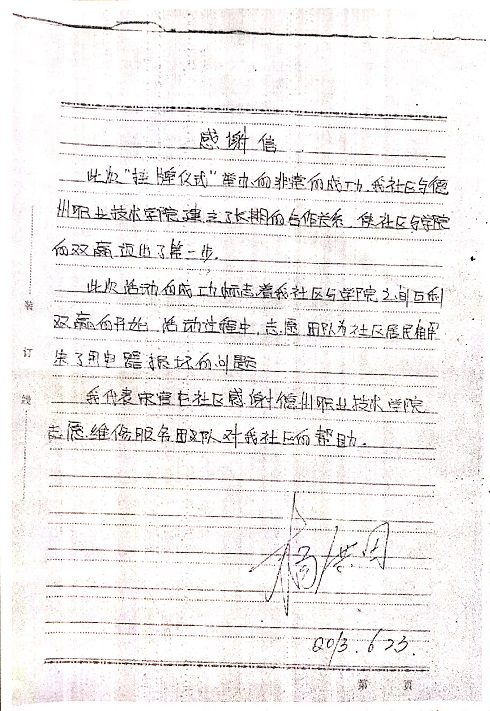 感谢信
此次“挂牌仪式”举办的非常的成功,我社区与德
州职业技术学院建立了长期的合作关系,使社区与学院
的双赢迈出了第一步。
此次活动的成功标志着我社区与学院之间互利
双赢的开始,活动过程中,志愿团队为社区居民解
决了用电器损坏的问题
我代表宋官屯社区感谢德州职业技术学院
志愿维修服务团队对我社区的帮助。
2013.6.23.
装
订
线
第 页